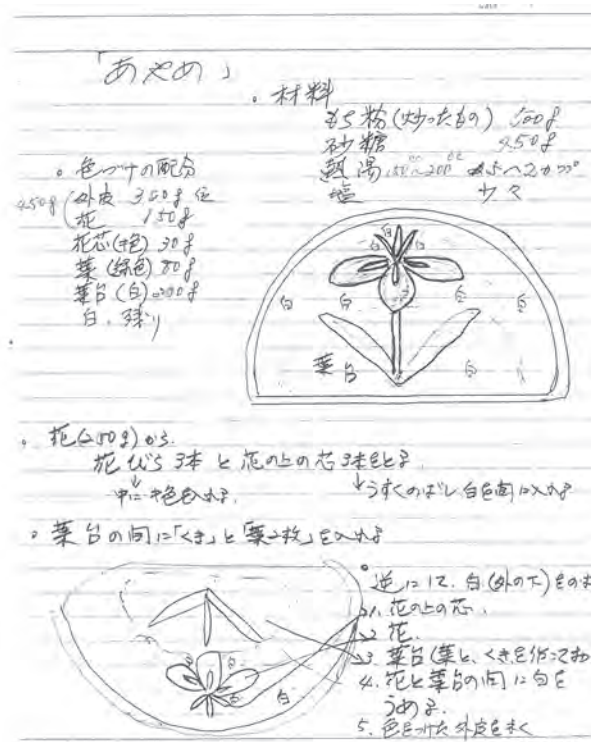 「あやめ」
・材料
もち粉(炒ったもの) 500g
砂糖 450g
熱湯 150〜200cc 2カップ
塩 少々
・色づけの配分
450g
外皮 300g 位
花 150g
花芯(黄色) 30g
葉(緑色) 80g
葉台(白) 200g
白、残り
白 白 白
白 白 白 白
葉台 白 白
・花(250g)から
花びら3本と花の上の芯3本をとる
↓
中に黄色を入れる。
↓うすくのばし、白を間に入れる
・葉台の間に「くき」と「葉2枚」を入れる
・逆にして、白(外の下)をのせ
1. 花の上の芯.
2 花.
3. 葉台(葉と、くきを作ってお
4. 花と葉台の間に白を
うめる.
5. 色をつけた外皮をまく
白 白
白